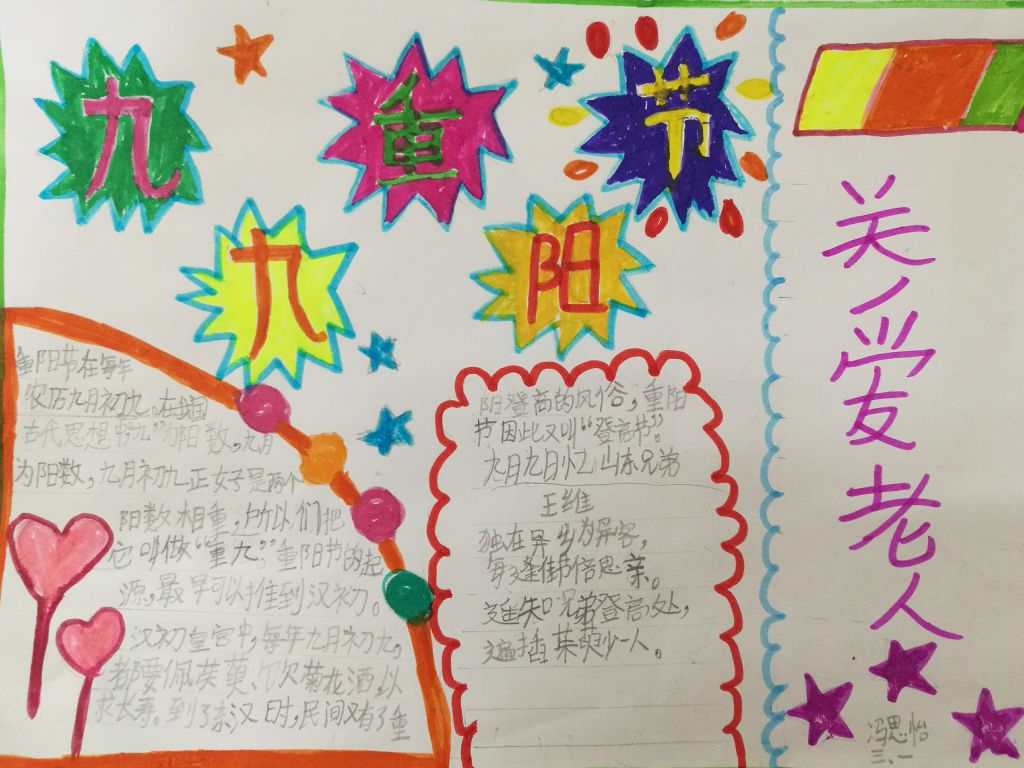 九 重 节
九 阳
重阳节在每年
农历九月初九。在我国
古代思想书"九"为阳数,九月
为阳数,九月初九正女子是两个
阳数相重,所以们把
它叫做"重九"?重阳节的起
源,最早可以推到汉初。
汉初皇宫中,每年九月初九,
都要佩茱萸、饮菊花酒,以
求长寿。到了末汉时,民间又有了重
阳登高的风俗,重阳
节因此又叫"登高节"。
九月九日忆山东兄弟
王维
独在异乡为异客,
每逢佳节倍思亲。
遥知兄弟登高处,
遍插茱萸少一人。
关爱老人
冯思怡
三、一